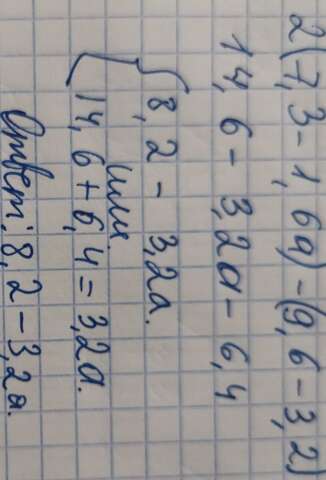 2(7,3-1,6a)-(9,6-3,2)
14,6-3,2a-6,4
8,2-3,2a.
или.
14,6+6,4=3,2a.
Ответ: 8,2-3,2a.